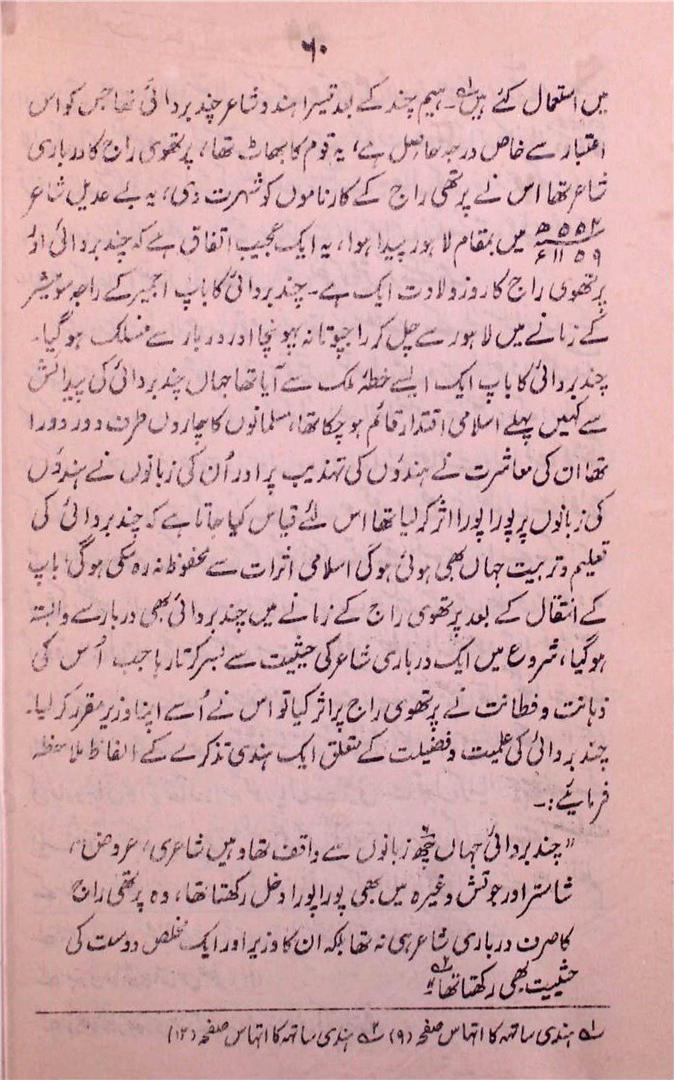 ۶۰
میں استعمال کئے ہیں۱؎۔ ہیم چند کے بعد تیسرا ہندو شاعر چند بردائی تھا جس کو اس
اعتبار سے خاص درجہ حاصل ہے، یہ قوم کا بھاٹ تھا، پرتھوی راج کا درباری
شاعر تھا اس نے پرتھی راج کے کارناموں کو شہرت دی، یہ بے عدیل شاعر
۵۵۴ھ ۱۱۵۹ء میں بمقام لاہور پیدا ہوا، یہ ایک عجیب اتفاق ہے کہ چند بردائی اور
پرتھوی راج کا روز ولادت ایک ہے۔ چند بردائی کا باپ اجمیر کے راجہ سومیشر
کے زمانے میں لاہور سے چل کر راجپوتانہ پہونچا اور دربار سے منسلک ہو گیا۔
چند بردائی کا باپ ایک ایسے خطۂ ملک سے آیا تھا جہاں چند بردائی کی پیدائش
سے کہیں پہلے اسلامی اقتدار قائم ہو چکا تھا، مسلمانوں کا چاروں طرف دور دورا
تھا ان کی معاشرت نے ہندوں کی تہذیب پر اور اُن کی زبانوں نے ہندوں
کی زبانوں پر پورا پورا اثر کر لیا تھا اس لئے قیاس کیا جاتا ہے کہ چند بردائی کی
تعلیم و تربیت جہاں بھی ہوئی ہوگی اسلامی اثرات سے محفوظ نہ رہ سکی ہوگی، باپ
کے انتقال کے بعد پرتھوی راج کے زمانے میں چند بردائی بھی دربار سے وابستہ
ہوگیا، شروع میں ایک درباری شاعر کی حیثیت سے بسر کرتا رہا جب اُس کی
ذہانت و فطانت نے پرتھوی راج پر اثر کیا تو اس نے اُسے اپنا وزیر مقرر کر لیا۔
چند بردائی کی علمیت و فضیلت کے متعلق ایک ہندی تذکرے کے الفاظ ملاحظہ
فرمائیے:۔
"چند بردائی جہاں چھ زبانوں سے واقف تھا وہیں شاعری، عروض،
شاستر اور جوتش وغیرہ میں بھی پورا پورا دخل رکھتا تھا، وہ پرتھی راج
کا صرف درباری شاعر ہی نہ تھا بلکہ ان کا وزیر اور ایک مخلص دوست کی
حیثیت بھی رکھتا تھا۲؎"
۱؎ ہندی ساتھ کا اتہاس صفحہ (۹) ۲؎ ہندی ساتھ کا اتہاس صفحہ (۱۲)